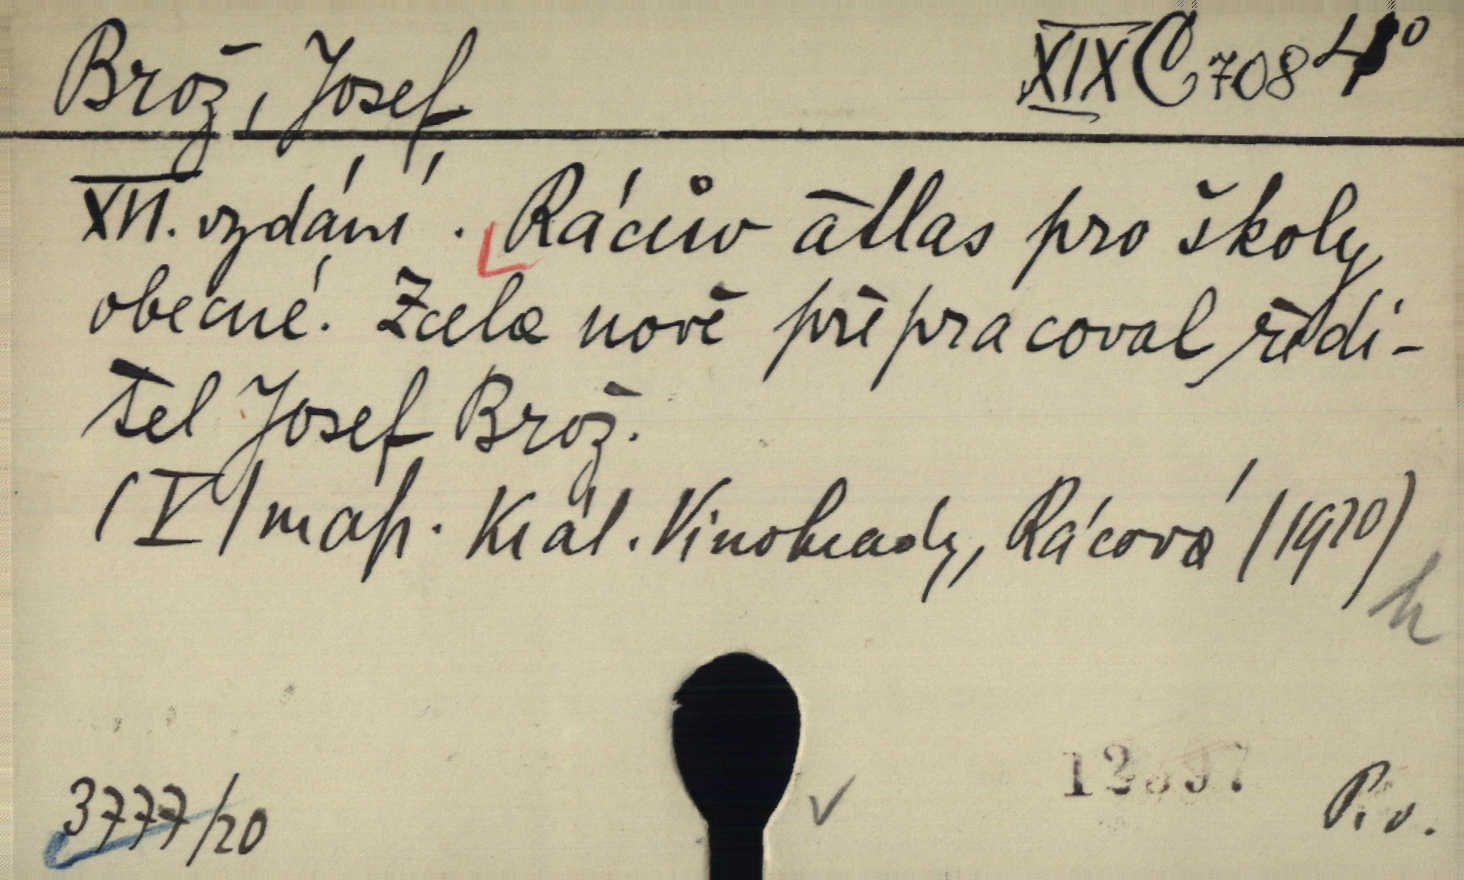 Brož, Josef
XIX C 708 4°
XVI. vydání. Rácův atlas pro školy
obecné. Zcela nově přepracoval ředi-
tel Josef Brož.
(V) map. Král. Vinohrady, Rácová (1920)
3777/20
P. v.